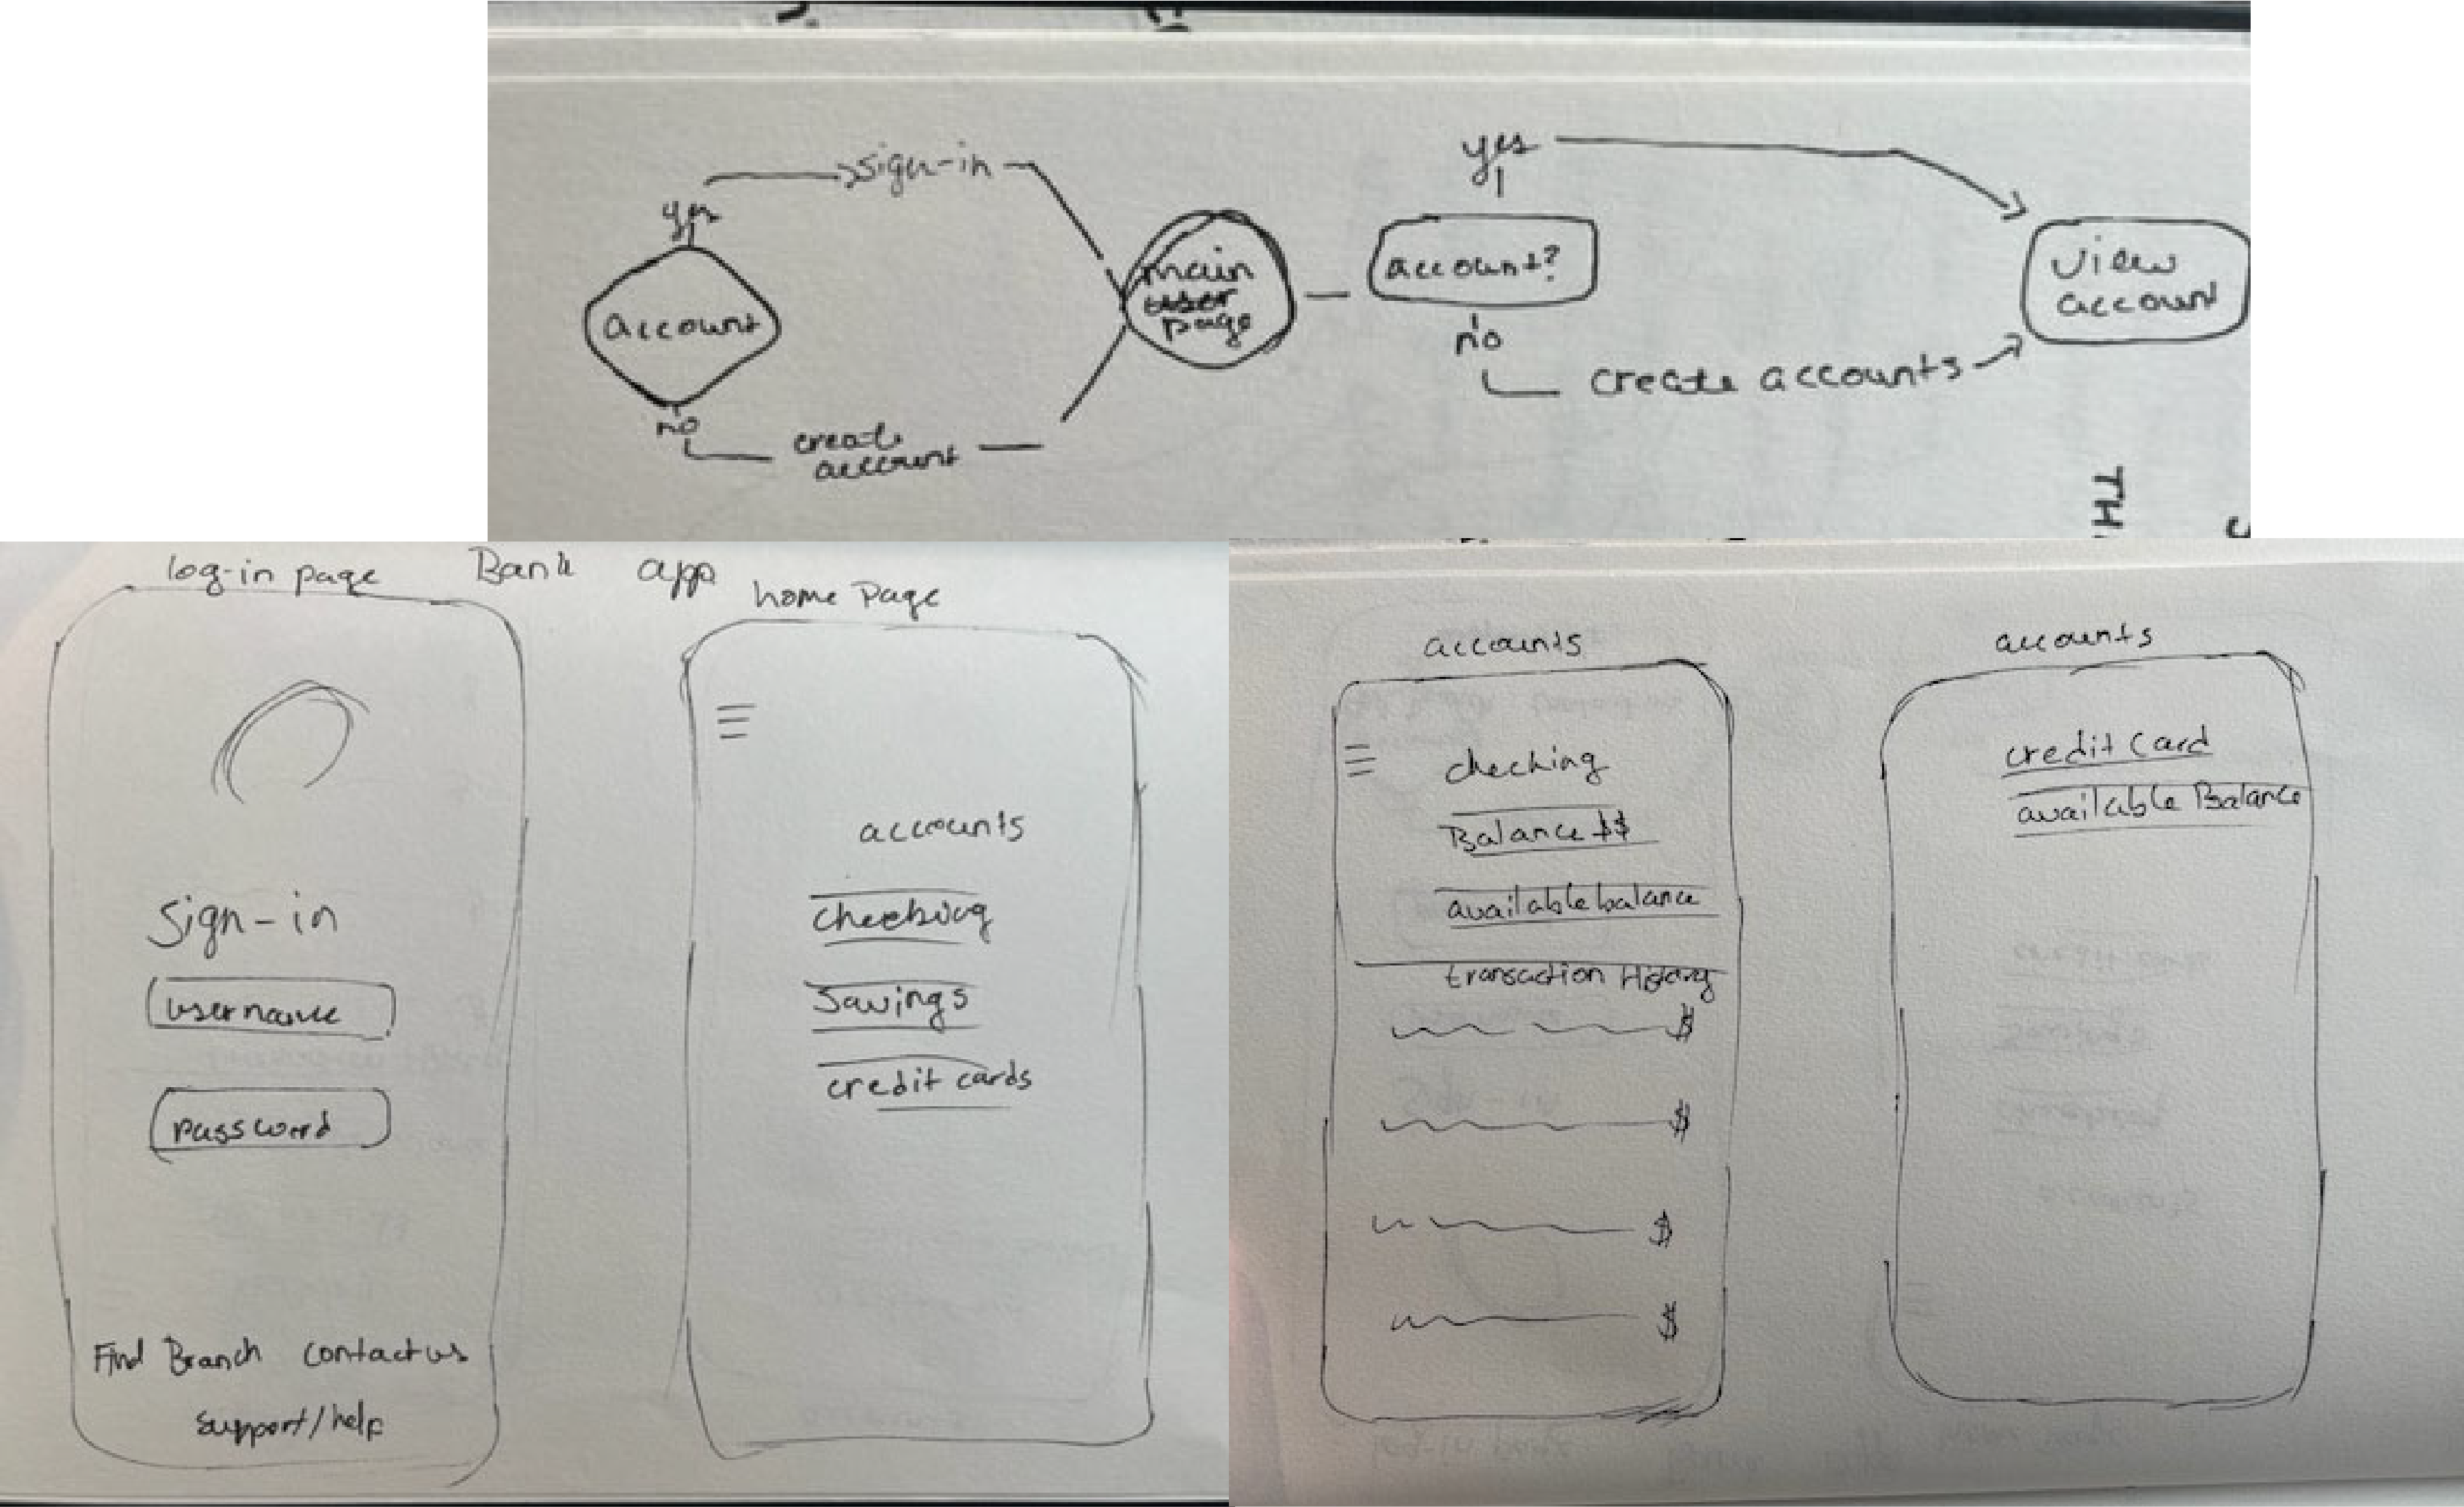 yes
sign-in
account
no
create
account
main
user
page
yes
account?
no
create accounts
view
account
TH
log-in page
Bank app
home Page
Sign-in
username
password
Find Branch contact us
support/help
accounts
checking
Savings
credit cards
accounts
checking
Balance $$
available balance
transaction History
$
$
$
$
accounts
credit Card
available Balance